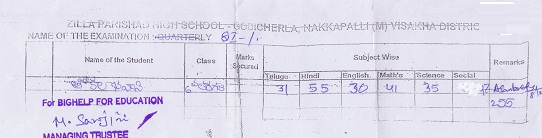 ZILLA PARISHAD HIGH SCHOOL - GODICHERLA, NAKKAPALLI (M) VISAKHA DISTRIC
NAME OF THE EXAMINATION : QUARTERLY
Name of the Student Class Marks Secured Subject Wise Remarks
Telugu Hindi English Math's Science Social
31 55 30 41 35
255
For BIGHELP FOR EDUCATION
M. Sarojini
MANAGING TRUSTEE